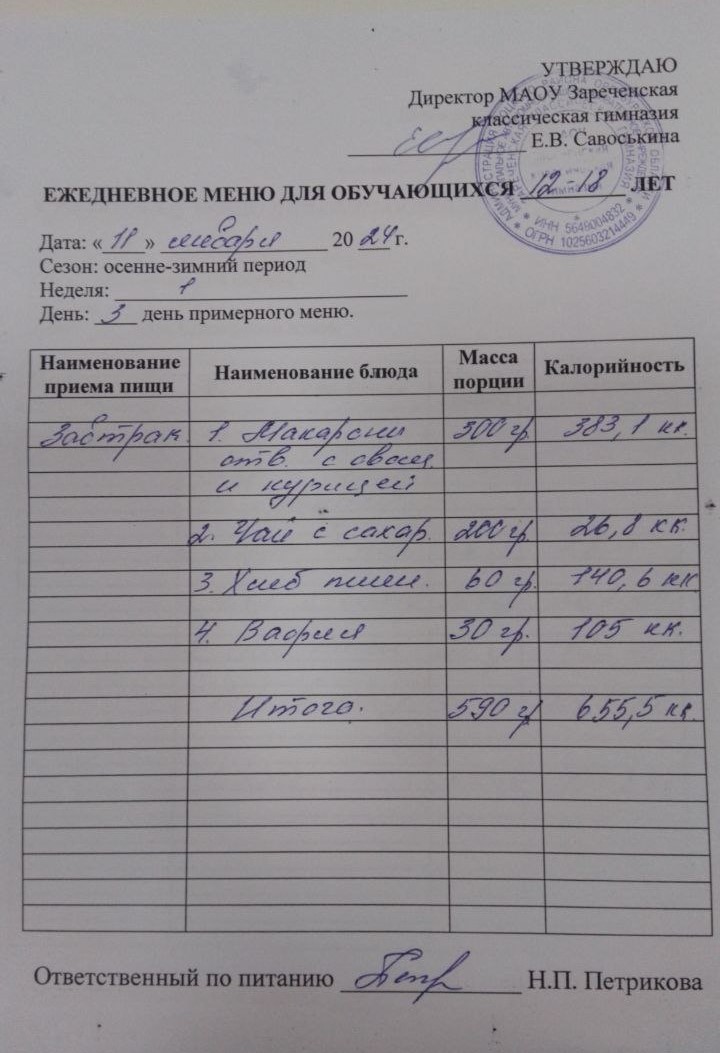 УТВЕРЖДАЮ
Директор МАОУ Зареченская
классическая гимназия
Е.В. Савоськина
ЕЖЕДНЕВНОЕ МЕНЮ ДЛЯ ОБУЧАЮЩИХСЯ 12-18 ЛЕТ
Дата: « » января 20 24 г.
Сезон: осенне-зимний период
Неделя: 1
День: 3 день примерного меню.
Наименование приема пищи Наименование блюда Масса порции Калорийность
Завтрак 1. Макароны 300 гр. 383,1 кк.
отв. с овощ.
и курицей
2. Чай с сахар. 200 гр. 26,8 кк.
3. Хлеб пшен. 60 гр. 140,6 кк
4. Вафля 30 гр. 105 кк.
Итого. 590 гр 655,5 кк.
Ответственный по питанию Н.П. Петрикова
ИНН 5649004832
ОГРН 1025603214449